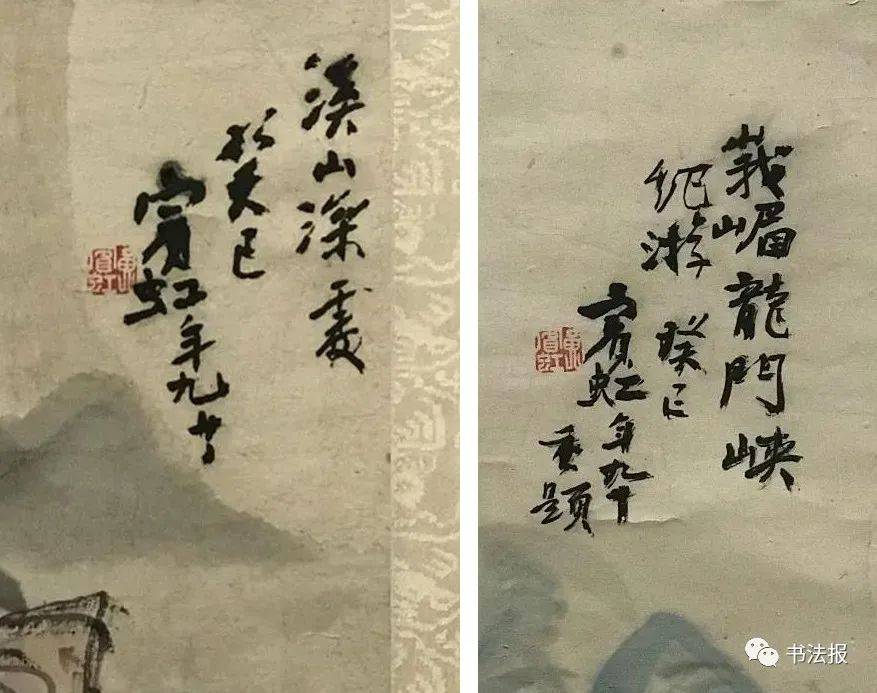 溪山深處
癸巳
賓虹年九十
黃賓虹
峩嵋龍門峽
紀游 癸巳
賓虹年九十
重題
黃賓虹
书法报